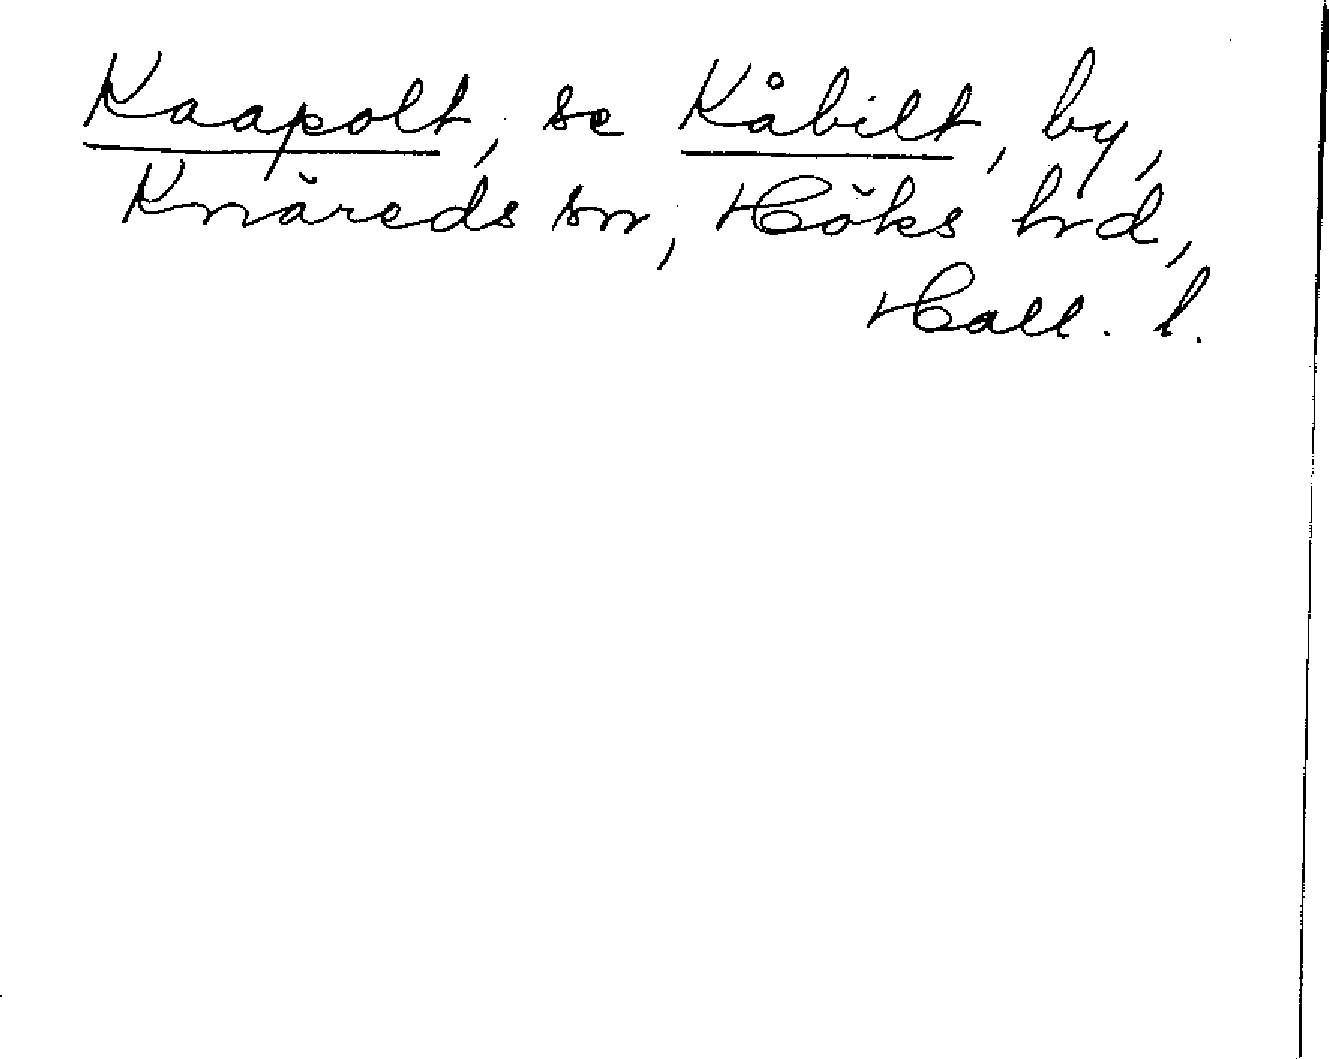 Kaapolt, se Kåbilt, by,
Knäreds sn, Höks hrd,
Hall. l.